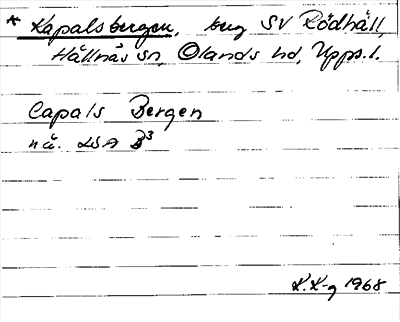 * Kapalsbergen, berg SV Rödhäll,
Hållnäs sn, Olands hd, Upps. l.
Capals Bergen
nä. LSA B³
K.K-g 1968